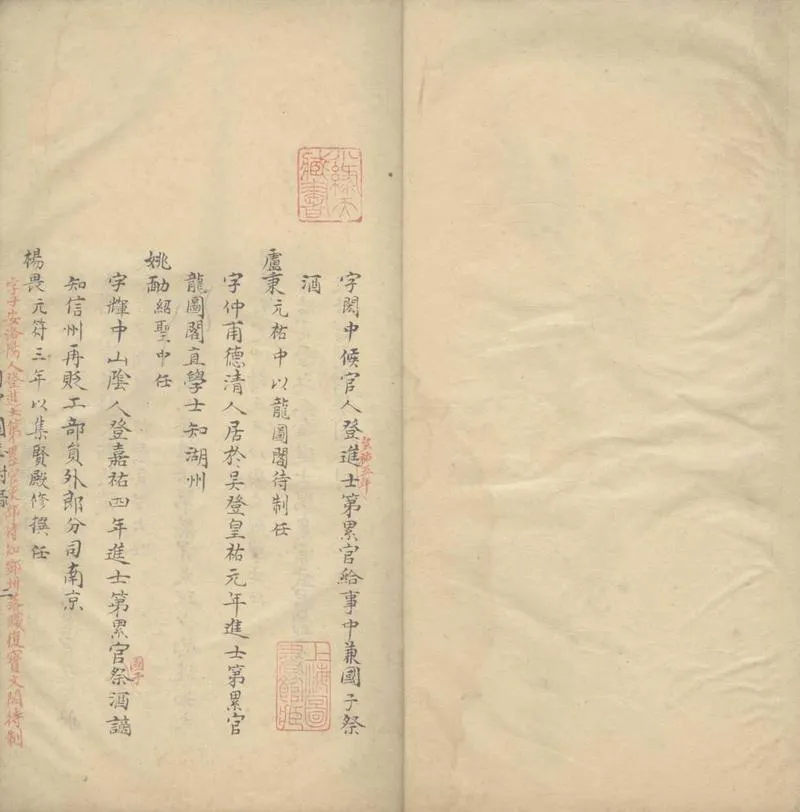 字閎中候官人登進士第累官給事中兼國子祭
皇祐五年
酒
盧秉元祐中以龍圖閣待制任
字仲甫德清人居於吳登皇祐元年進士第累官
龍圖閣直學士知湖州
姚勔紹聖中任
字輝中山陰人登嘉祐四年進士第累官祭酒謫
國子
知信州再貶工部員外郎分司南京
楊畏元符三年以集賢殿修撰任
字子安洛陽人登進士第累官部侍知鄧州落職復寶文閣待制
二
藏書
上海圖書館藏